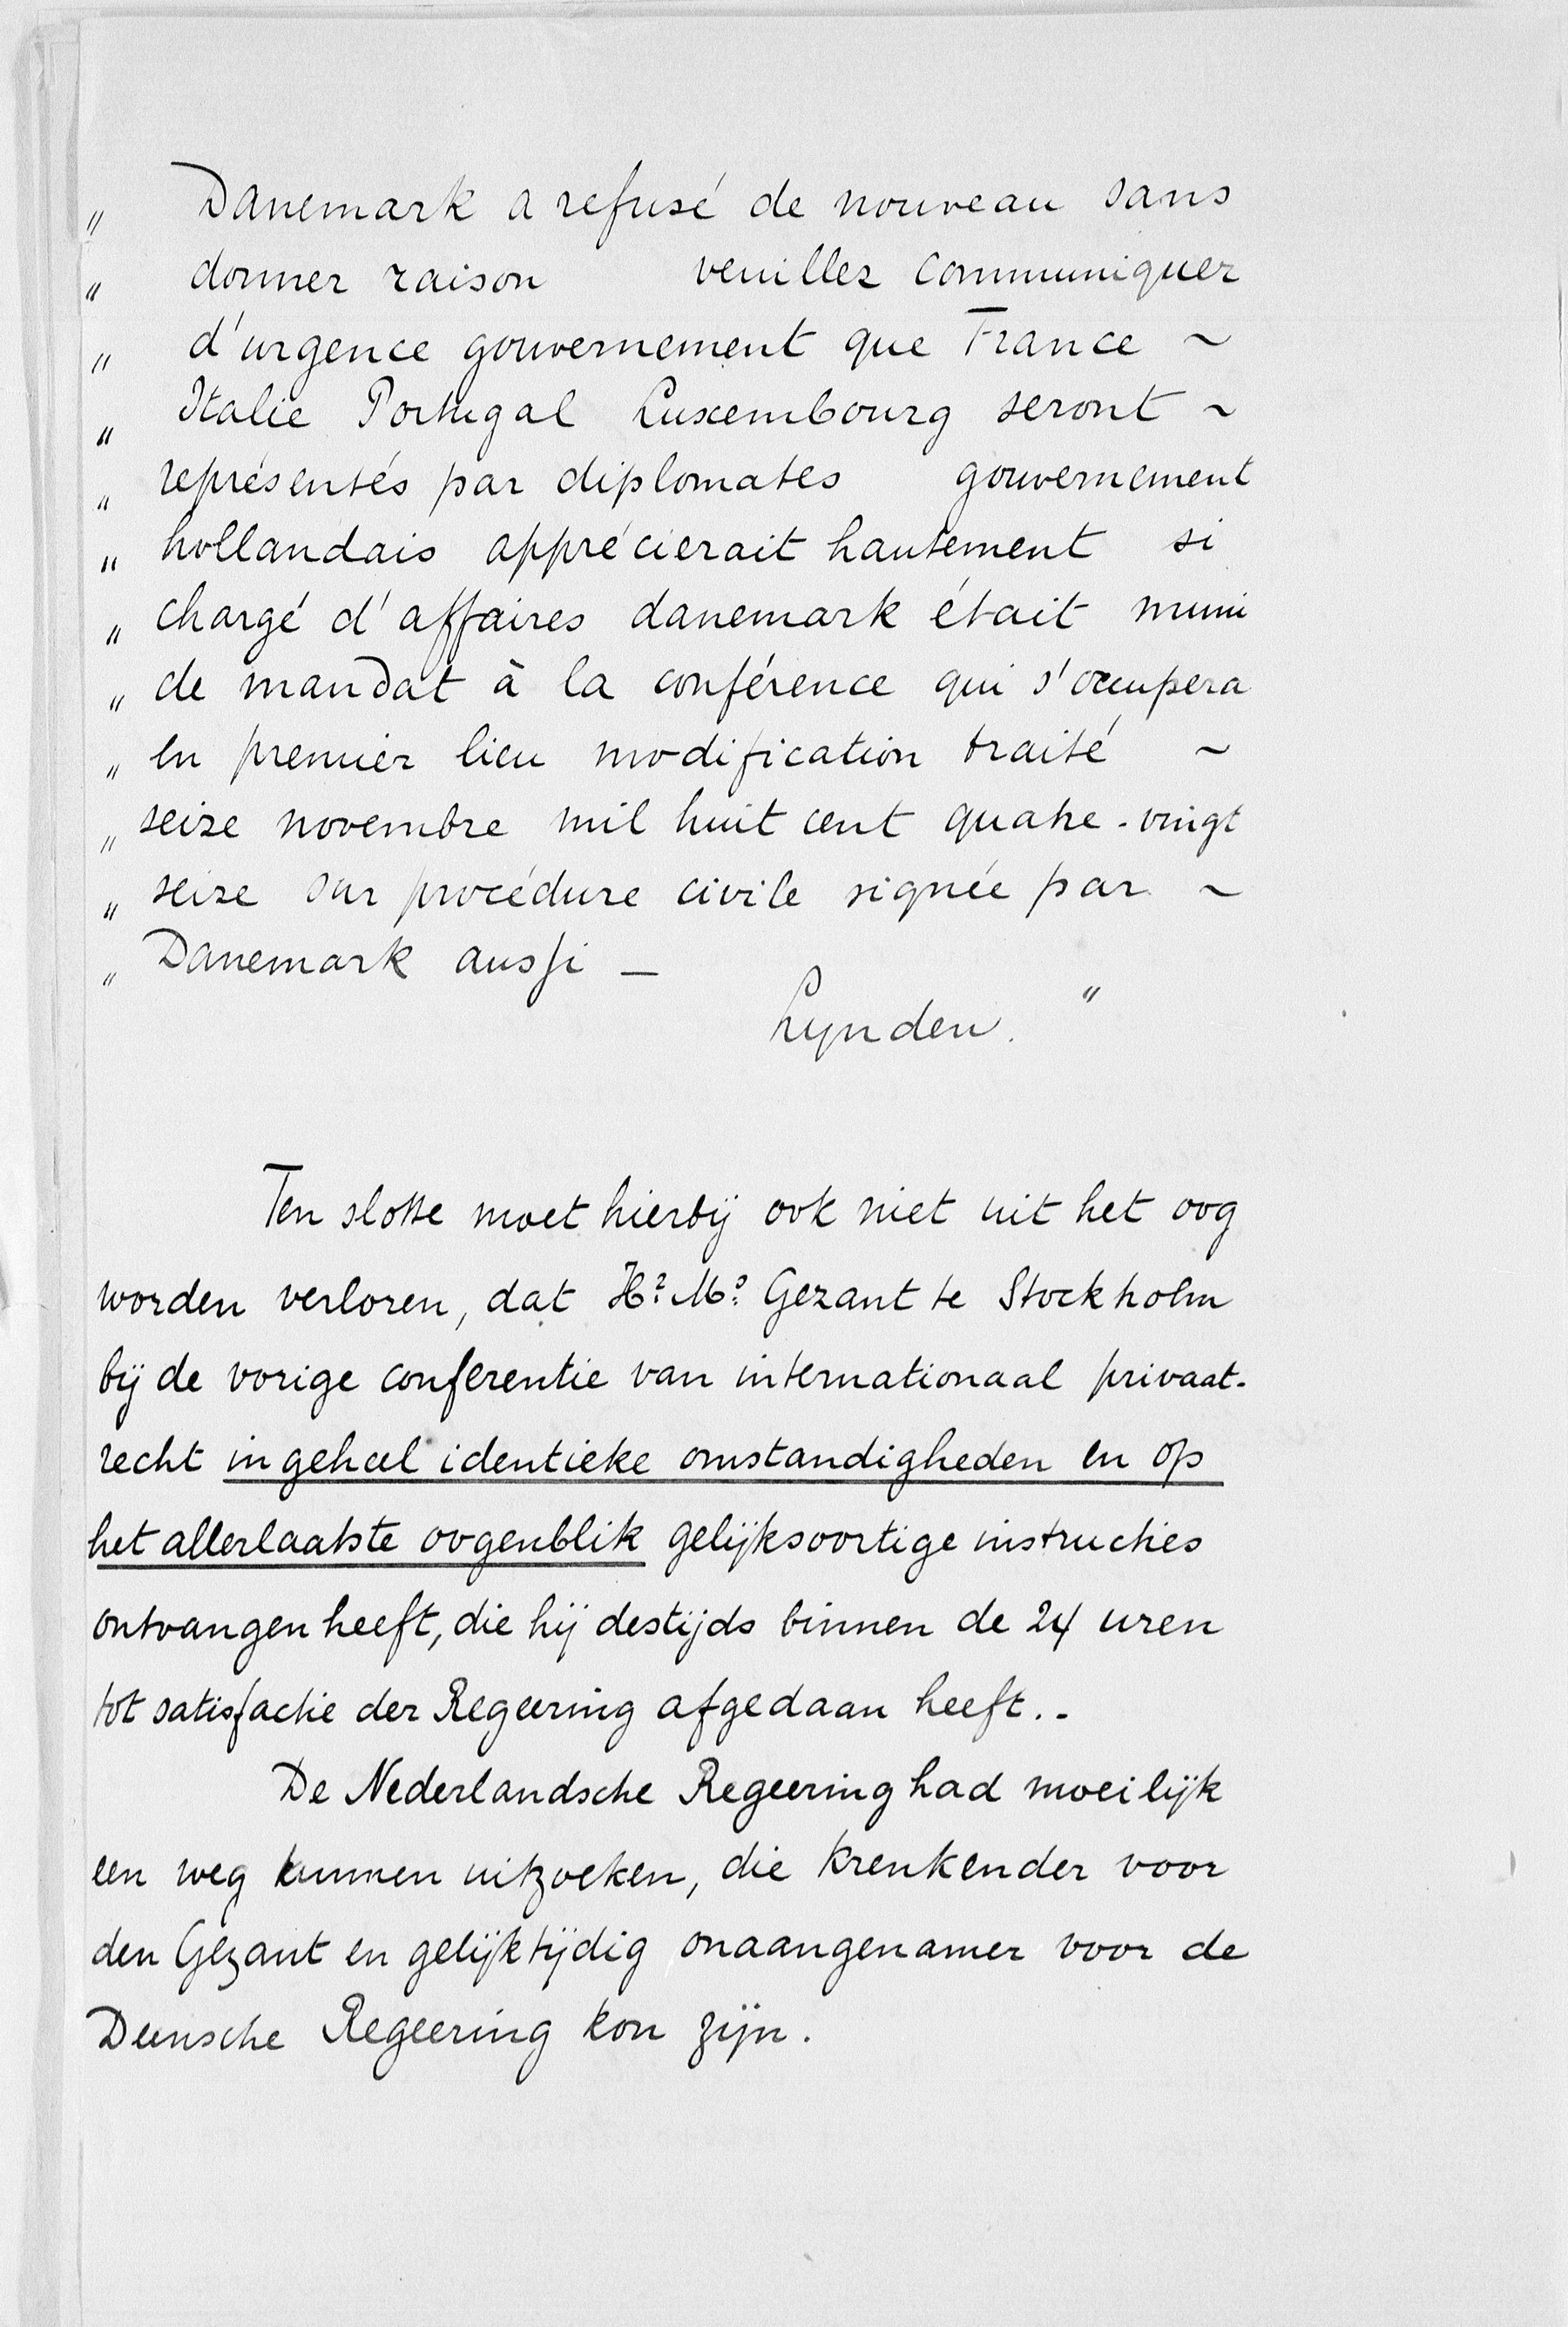 „ Danemark a refusé de nouveau sans
„ donner raison veuillez communiquer
„ d'urgence gouvernement que France ~
„ Italie Portugal Luxembourg seront ~
„ représentés par diplomates gouvernement
„ hollandais apprécierait hautement si
„ chargé d'affaires danemark était muni
„ de mandat à la conférence qui s'occupera
„ en premier lieu modification traité ~
„ seize novembre mil huit cent quatre-vingt
„ seize sur procédure civile signée par ~
„ Danemark aussi —
Lynden. "
Ten slotte moet hierbij ook niet uit het oog
worden verloren, dat Hr. Ms. Gezant te Stockholm
bij de vorige conferentie van internationaal privaat-
recht in geheel identieke omstandigheden en op
het allerlaatste oogenblik gelijksoortige instructies
ontvangen heeft, die hij destijds binnen de 24 uren
tot satisfactie der Regeering afgedaan heeft.-
De Nederlandsche Regeering had moeilijk
een weg kunnen uitzoeken, die krenkender voor
den Gezant en gelijktijdig onaangenamer voor de
Deensche Regeering kon zijn.